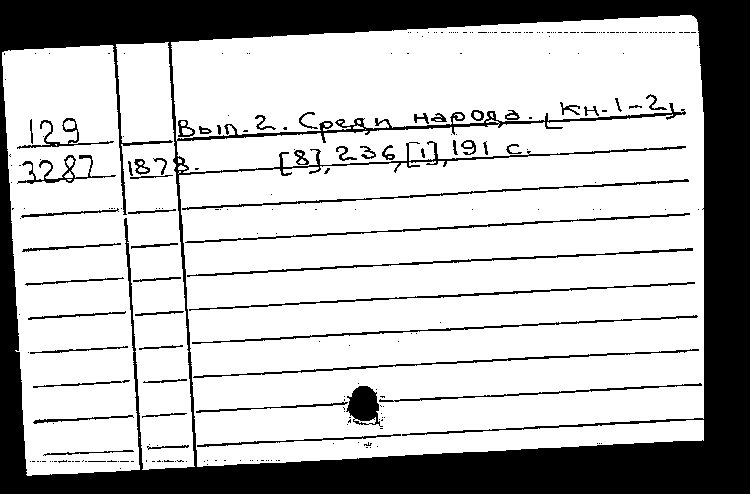 129 Вып. 2. Среди народа. [Кн. 1-2].
3287 1878. [8], 236, [1], 191 с.